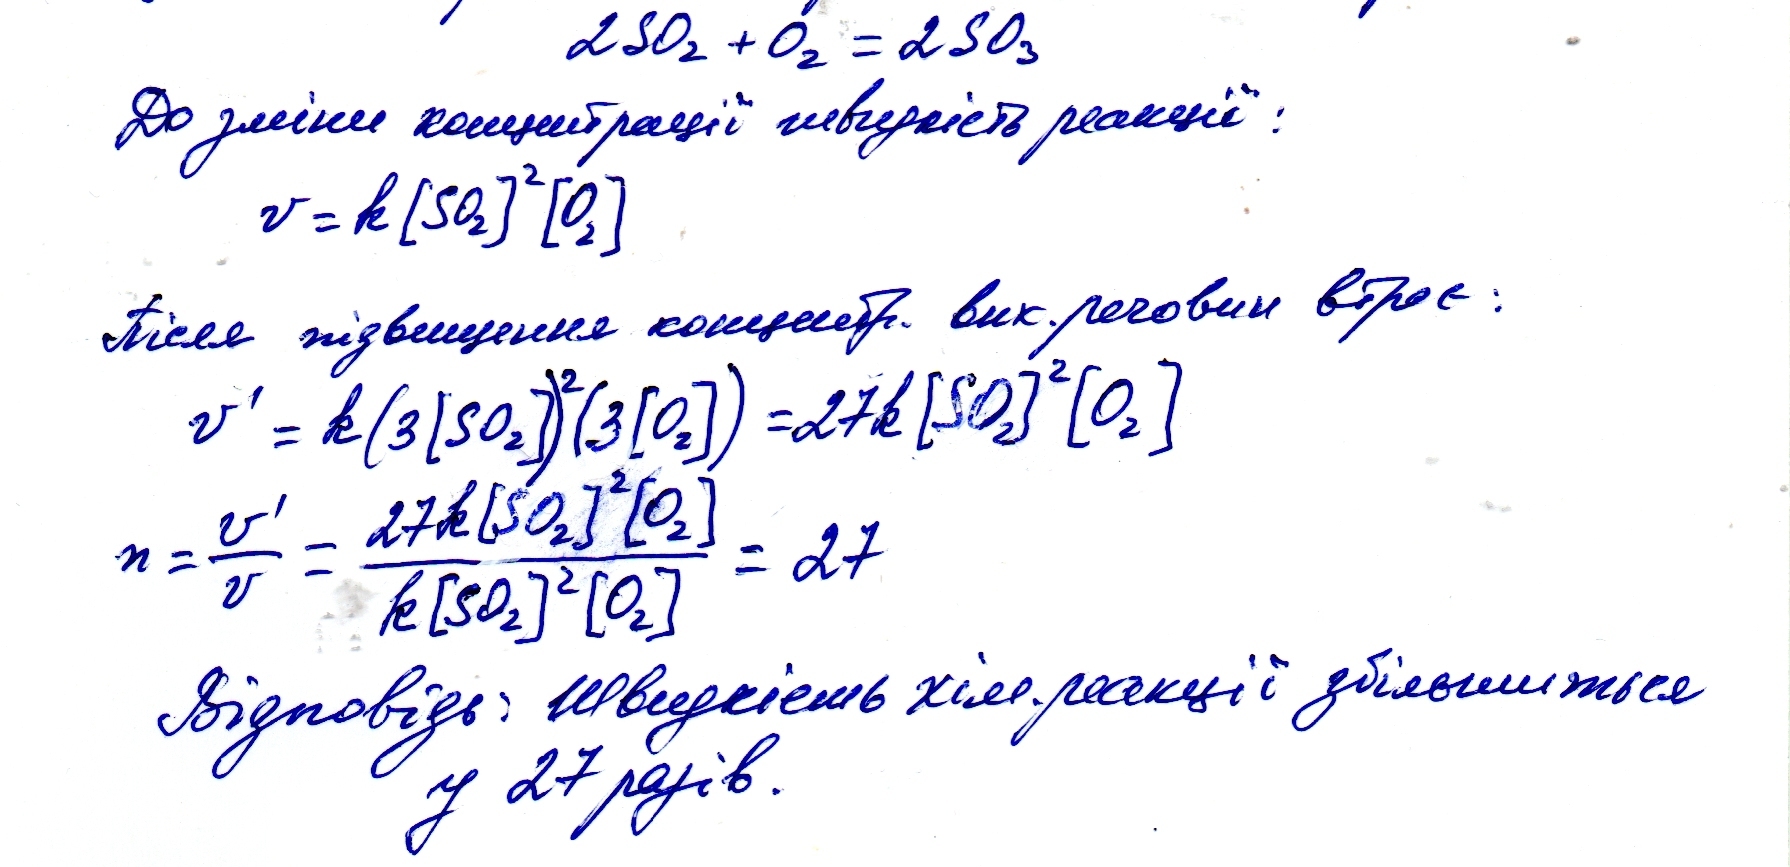 2SO₂ + O₂ = 2SO₃
До зміни концентрації швидкість реакції:
v = k[SO₂]²[O₂]
Після підвищення концентр. вих. речовин втроє:
v' = k(3[SO₂])²(3[O₂]) = 27k[SO₂]²[O₂]
n = v'/v = 27k[SO₂]²[O₂] / k[SO₂]²[O₂] = 27
Відповідь: Швидкість хім. реакції збільшиться
у 27 разів.